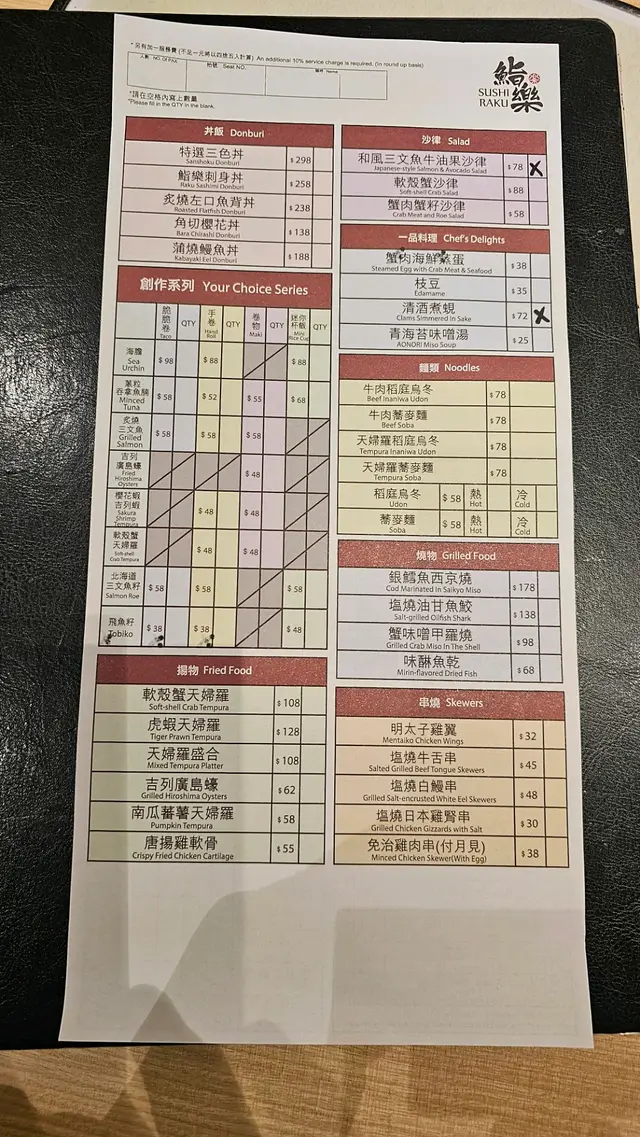 *另有加一服務費 (不足一元將以四捨五入計算) An additional 10% service charge is required. (In round up basis)
人數 NO. Of PAX
枱號 Seat NO.
Name
*請在空格內寫上數量
*Please fill in the QTY in the blank.
鮨樂
SUSHI
RAKU
丼飯 Donburi
特選三色丼 $298
Sanshoku Donburi
鮨樂刺身丼 $258
Raku Sashimi Donburi
炙燒左口魚背丼 $238
Roasted Flatfish Donburi
角切櫻花丼 $138
Bara Chirashi Donburi
蒲燒鰻魚丼 $188
Kabayaki Eel Donburi
創作系列 Your Choice Series
脆脆卷 Taco QTY 手卷 Hand Roll QTY 卷物 Maki QTY 迷你杯飯 Mini Rice Cup QTY
海膽 Sea Urchin $98 $88 $88
蔥粒吞拿魚腩 Minced Tuna $58 $52 $55 $68
炙燒三文魚 Grilled Salmon $58 $58 $58
吉列廣島蠔 Fried Hiroshima Oysters $48
櫻花蝦吉列蝦 Sakura Shrimp Tempura $48 $48
軟殼蟹天婦羅 Soft-shell Crab Tempura $48 $48
北海道三文魚籽 Salmon Roe $58 $58 $58
飛魚籽 Tobiko $38 $38 $48
揚物 Fried Food
軟殼蟹天婦羅 $108
Soft-shell Crab Tempura
虎蝦天婦羅 $128
Tiger Prawn Tempura
天婦羅盛合 $108
Mixed Tempura Platter
吉列廣島蠔 $62
Grilled Hiroshima Oysters
南瓜蕃薯天婦羅 $58
Pumpkin Tempura
唐揚雞軟骨 $55
Crispy Fried Chicken Cartilage
沙律 Salad
和風三文魚牛油果沙律 $78 X
Japanese-style Salmon & Avocado Salad
軟殼蟹沙律 $88
Soft-shell Crab Salad
蟹肉蟹籽沙律 $58
Crab Meat and Roe Salad
一品料理 Chef's Delights
蟹肉海鮮蒸蛋 $38
Steamed Egg with Crab Meat & Seafood
枝豆 $35
Edamame
清酒煮蜆 $72 X
Clams Simmered In Sake
青海苔味噌湯 $25
AONORI Miso Soup
麵類 Noodles
牛肉稻庭烏冬 $78
Beef Inaniwa Udon
牛肉蕎麥麵 $78
Beef Soba
天婦羅稻庭烏冬 $78
Tempura Inaniwa Udon
天婦羅蕎麥麵 $78
Tempura Soba
稻庭烏冬 $58 熱 冷
Udon Hot Cold
蕎麥麵 $58 熱 冷
Soba Hot Cold
燒物 Grilled Food
銀鱈魚西京燒 $178
Cod Marinated In Saikyo Miso
塩燒油甘魚鮫 $138
Salt-grilled Oilfish Shark
蟹味噌甲羅燒 $98
Grilled Crab Miso In The Shell
味醂魚乾 $68
Mirin-flavored Dried Fish
串燒 Skewers
明太子雞翼 $32
Mentaiko Chicken Wings
塩燒牛舌串 $45
Salted Grilled Beef Tongue Skewers
塩燒白鰻串 $48
Grilled Salt-encrusted White Eel Skewers
塩燒日本雞腎串 $30
Grilled Chicken Gizzards with Salt
免治雞肉串(付月見) $38
Minced Chicken Skewer(With Egg)